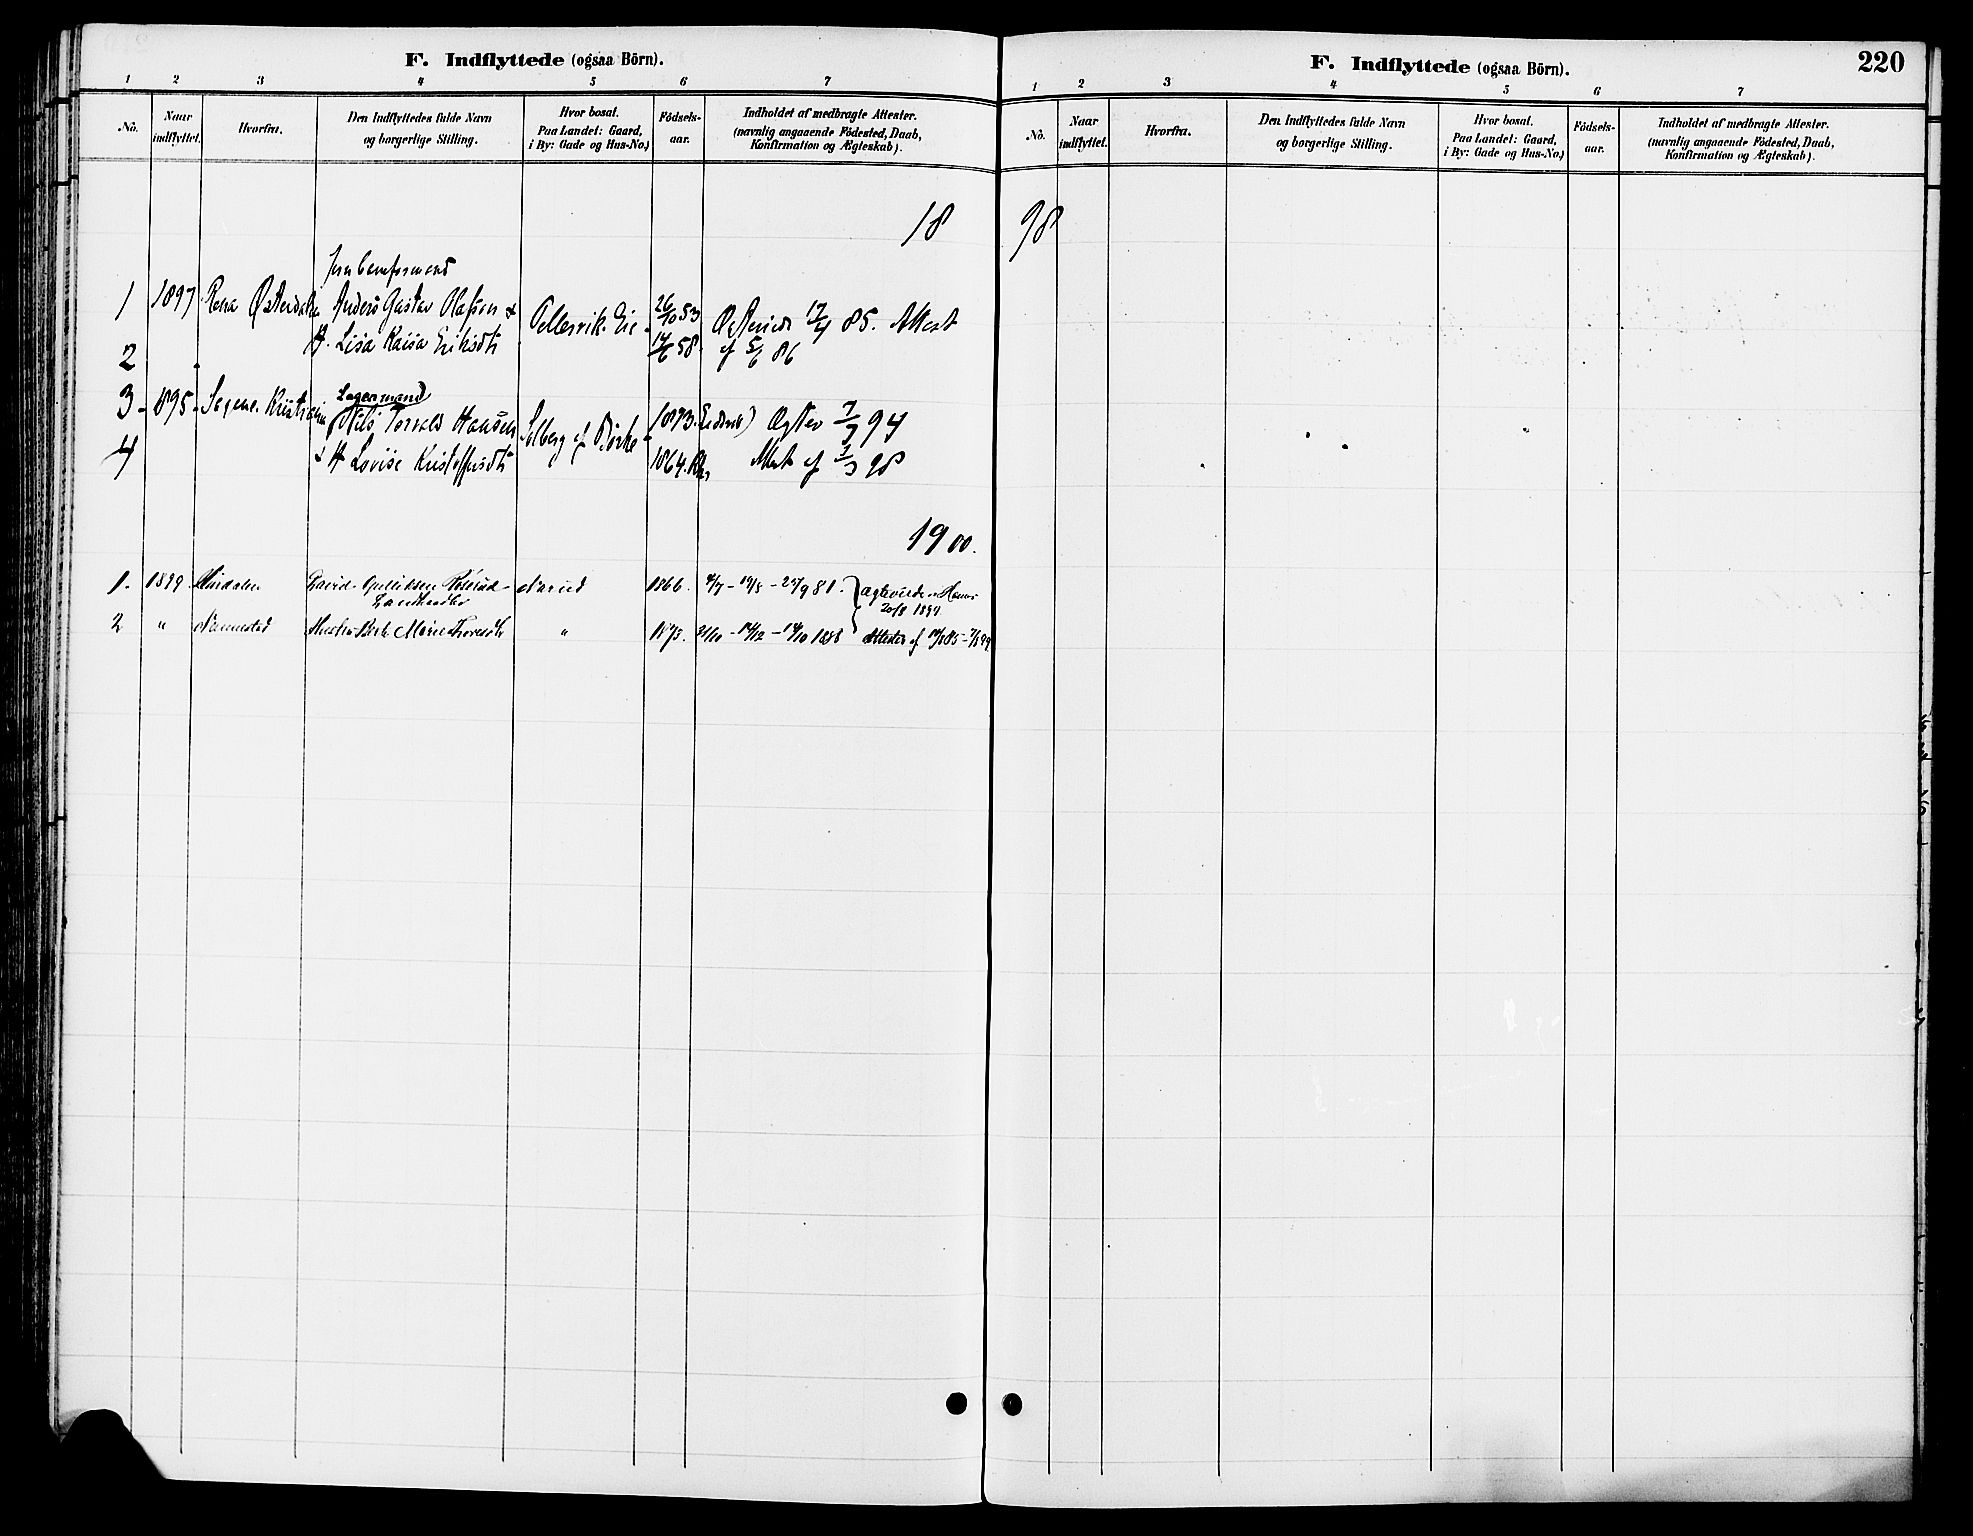 F. Indflyttede (ogsaa Börn).
1 2 3 4 5 6 7
No. Naar indflyttet. Hvorfra. Den Indflyttedes fulde Navn og borgerlige Stilling. Hvor bosat. Paa Landet: Gaard, i By: Gade og Hus-No.) Födsels-aar. Indholdet af medbragte Attester. (navnlig angaaende Födested, Daab, Konfirmation og Ægteskab).
18
1 1897 Rena Østerdalen Anders Gustav Olafson & Pellesvik Eie 26/10 53 17/4 85. Attest
2 H. Lisa Kaisa Eriksdtr 14/6 58 af 5/6 86
Lagermand
3 - 1895 - Sagene. Kristiania Nils Torvald Hansen Solberg af Børke 1873. Ægtev 7/7 94
4 & H Lovise Kristoffersdtr 1864. Attest af 7/3 98
1900.
1. 1899. David Gulliksen Røsrud - Narud 1866.
Landhandler 20/8 1899.
2 " Nannestad Marie " 1888 Attester af
F. Indflyttede (ogsaa Börn).
220
1 2 3 4 5 6 7
No. Naar indflyttet. Hvorfra. Den Indflyttedes fulde Navn og borgerlige Stilling. Hvor bosat. Paa Landet: Gaard, i By: Gade og Hus-No.) Födsels-aar. Indholdet af medbragte Attester. (navnlig angaaende Födested, Daab, Konfirmation og Ægteskab).
98